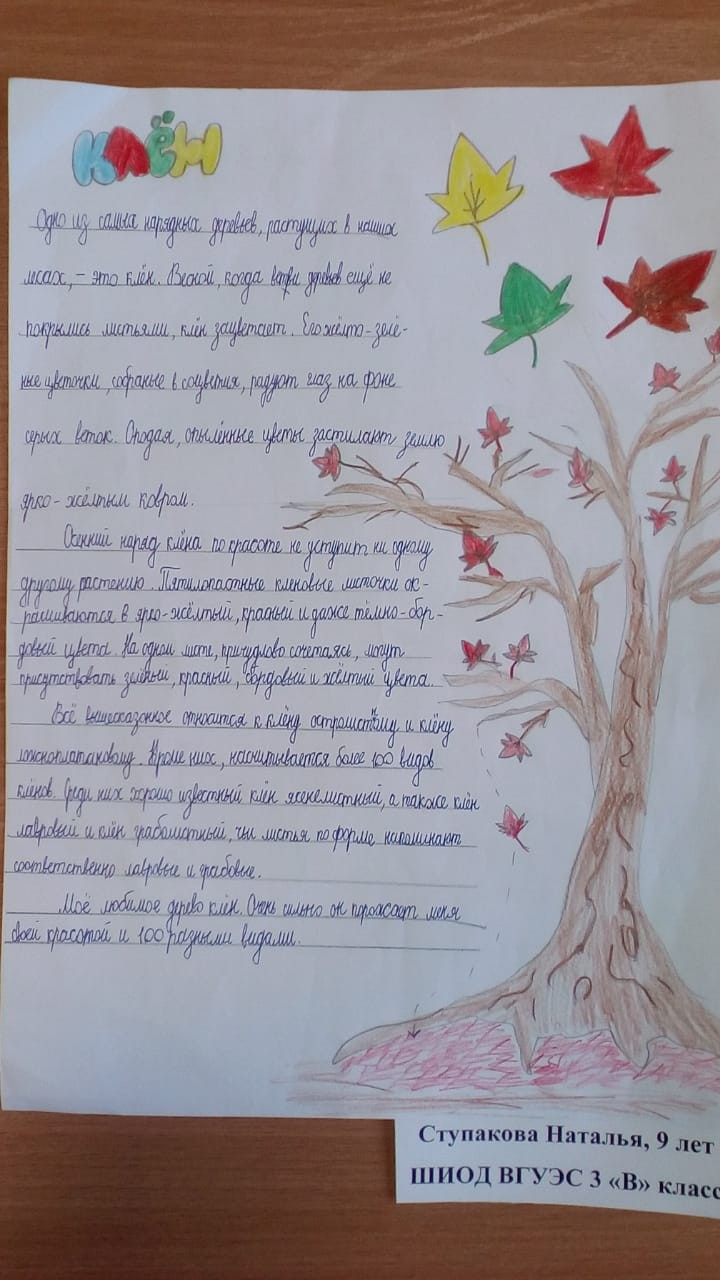 КЛЁН
Одно из самых нарядных деревьев, растущих в наших
лесах, - это клён. Весной, когда ветви деревьев ещё не
покрылись листьями, клён зацветает. Его жёлто-зелё-
ные цветочки, собраные в соцветия, радуют глаз на фоне
серых веток. Опадая, опылённые цветы застилают землю
ярко-жёлтым ковром.
Осенний наряд клёна по красоте не уступит ни одному
другому растению. Пятилопастные кленовые листочки ок-
рашиваются в ярко-жёлтый, красный и даже тёмно-бор-
довый цвета. На одном листе, причудливо сочетаясь, могут
присутствовать зелёный, красный, бордовый и жёлтый цвета.
Всё вышесказанное относится к клёну остролистному и клёну
ложноплатановому. Кроме них, насчитывается более 100 видов
клёнов. Среди них хорошо известный клён ясенелистный, а также клён
лавровый и клён граболистный, чьи листья по форме напоминают
соответственно лавровые и грабовые.
Моё любимое дерево клён. Очень сильно он поражает меня
своей красотой и 100 разными видами.
Ступакова Наталья, 9 лет
ШИОД ВГУЭС 3 «В» класс